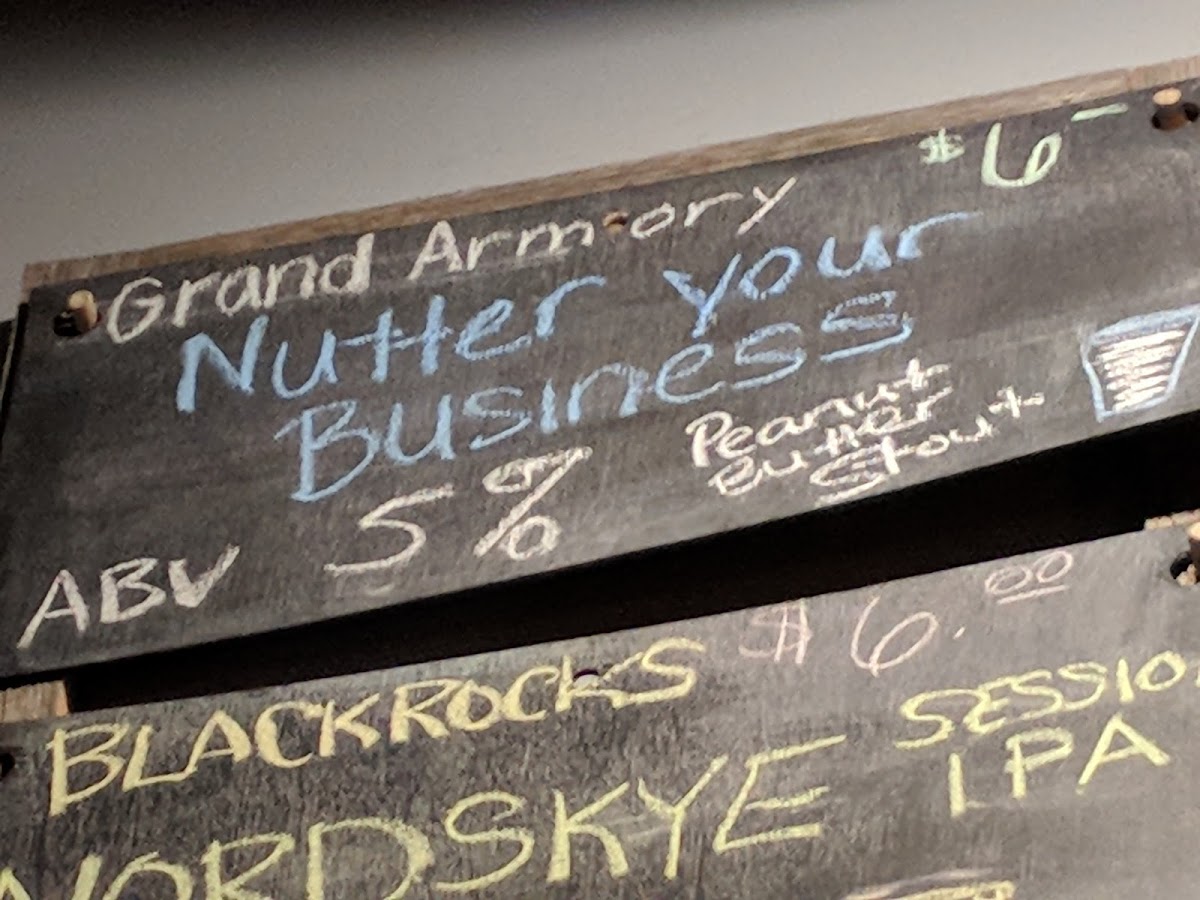 $6-
Grand Armory
Nutter your
Business
Peanut
Butter
Stout
ABV 5%
BLACKROCKS $6.00
SESSIO
IPA
NORDSKYE